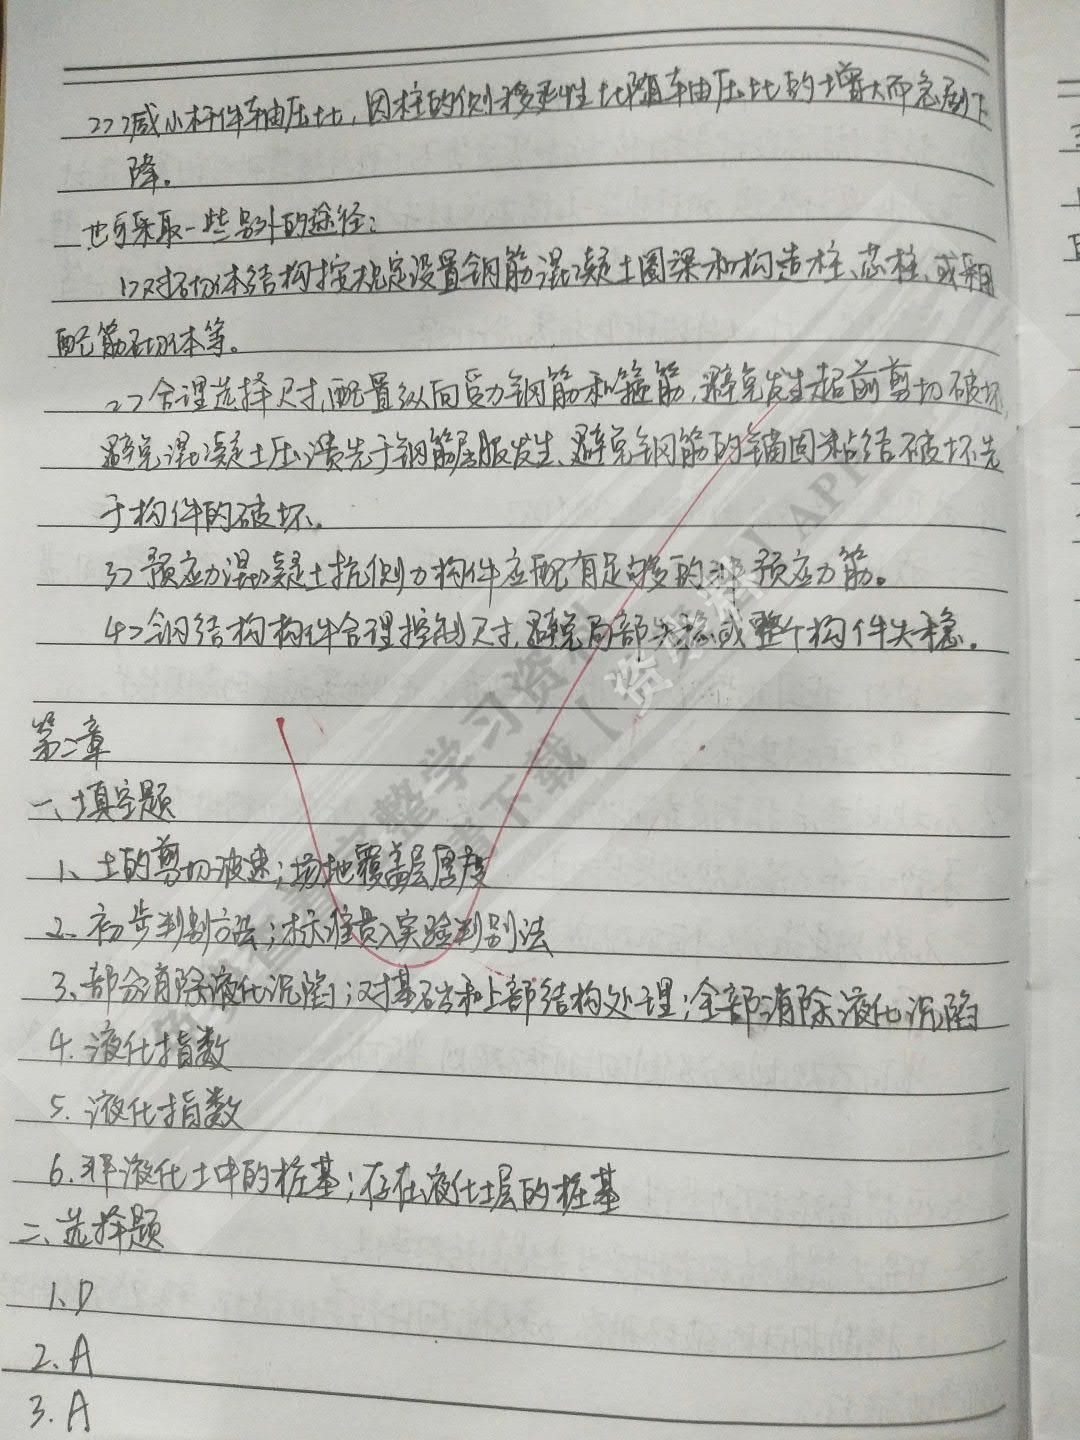 2>减小杆件轴压比,因柱的侧移延性比随轴压比的增大而急剧下
降。
也可采取一些另外的途径:
1>对砌体结构按规定设置钢筋混凝土圈梁和构造柱、芯柱,或采用
配筋砌体等。
2>合理选择尺寸,配置纵向受力钢筋和箍筋,避免发生超前剪切破坏,
避免混凝土压溃先于钢筋屈服发生、避免钢筋的锚固粘结破坏先
于构件的破坏。
3>预应力混凝土抗侧力构件应配有足够的非预应力筋。
4>钢结构构件合理控制尺寸,避免局部失稳或整个构件失稳。
第二章
一、填空题
1、土的剪切波速;场地覆盖层厚度
2、初步判别方法;标准贯入实验判别法
3、部分消除液化沉陷;对基础和上部结构处理;全部消除液化沉陷
4.液化指数
5.液化指数
6.非液化土中的桩基;存在液化土层的桩基
二、选择题
1、D
2.A
3.A
整学习资料
下载【资
API